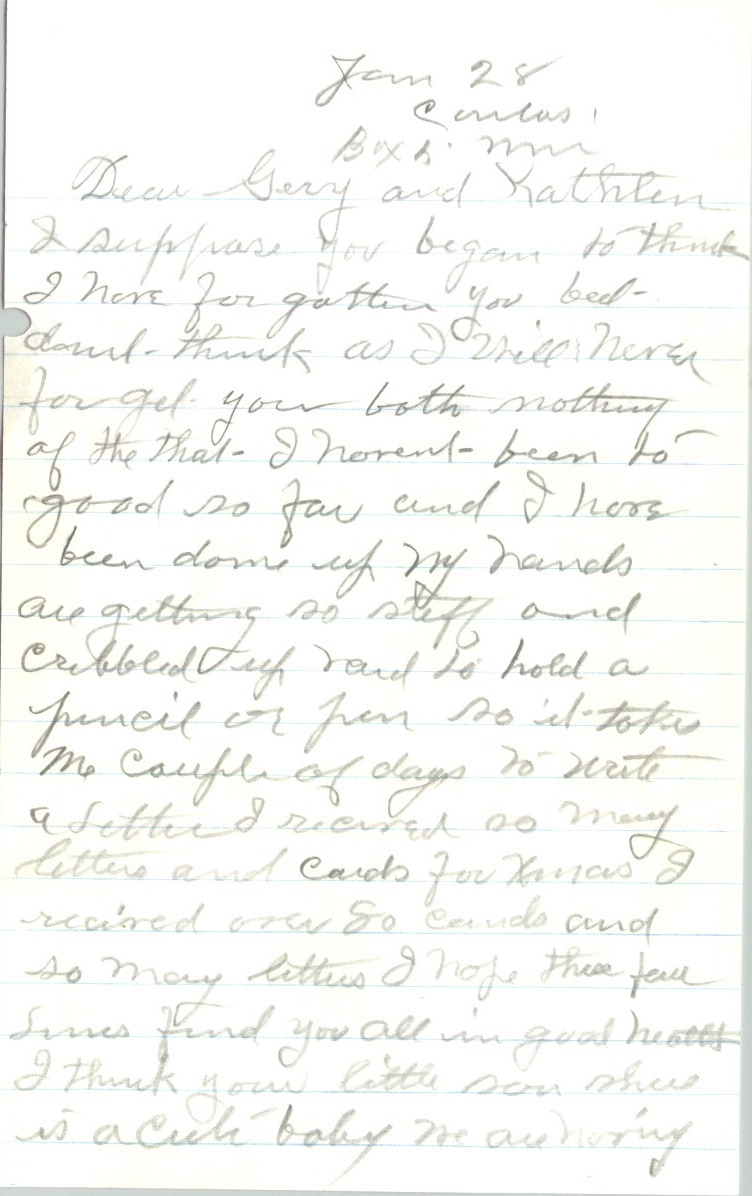 Jan 28
Box
Dear Gery and Kathleen
I suppose you began to think
I have for gotten you bed-
dont think as I will Never
for get your both nothing
of the that I havent been to
good so far and I have
been done up My hands
are getting so stiff and
cribbled up hard to hold a
pencil or pen so it takes
Me Couple of days to write
a Letter I recived so many
letters and cards for Xmas I
recived over 80 cards and
so many letters I hope these few
Lines find you all in good health
I think your little son
is a cute baby we are having